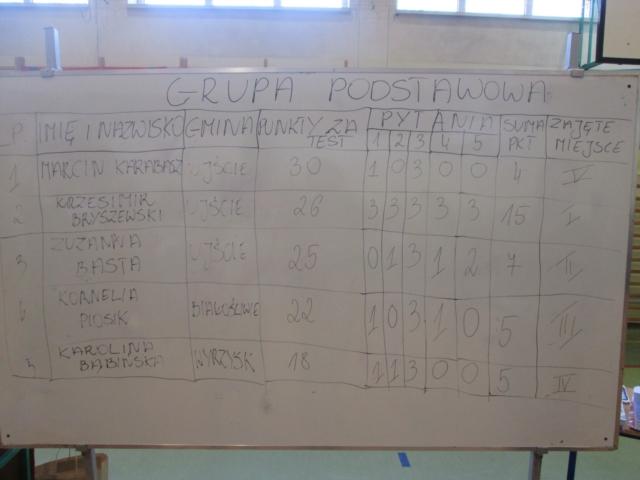 GRUPA PODSTAWOWA
L.P. IMIĘ I NAZWISKO GMINA PUNKTY ZA TEST PYTANIA 1 2 3 4 5 SUMA PKT ZAJĘTE MIEJSCE
1 MARCIN KARABASZ UJŚCIE 30 1 0 3 0 0 4 V
2 KRZESIMIR BRYSZEWSKI UJŚCIE 26 3 3 3 3 3 15 I
3 ZUZANNA BASTA UJŚCIE 25 0 1 3 1 2 7 II
4 KORNELIA PIOSIK BIAŁOŚLIWIE 22 1 0 3 1 0 5 III
5 KAROLINA BABIŃSKA WYRZYSK 18 1 1 3 0 0 5 IV